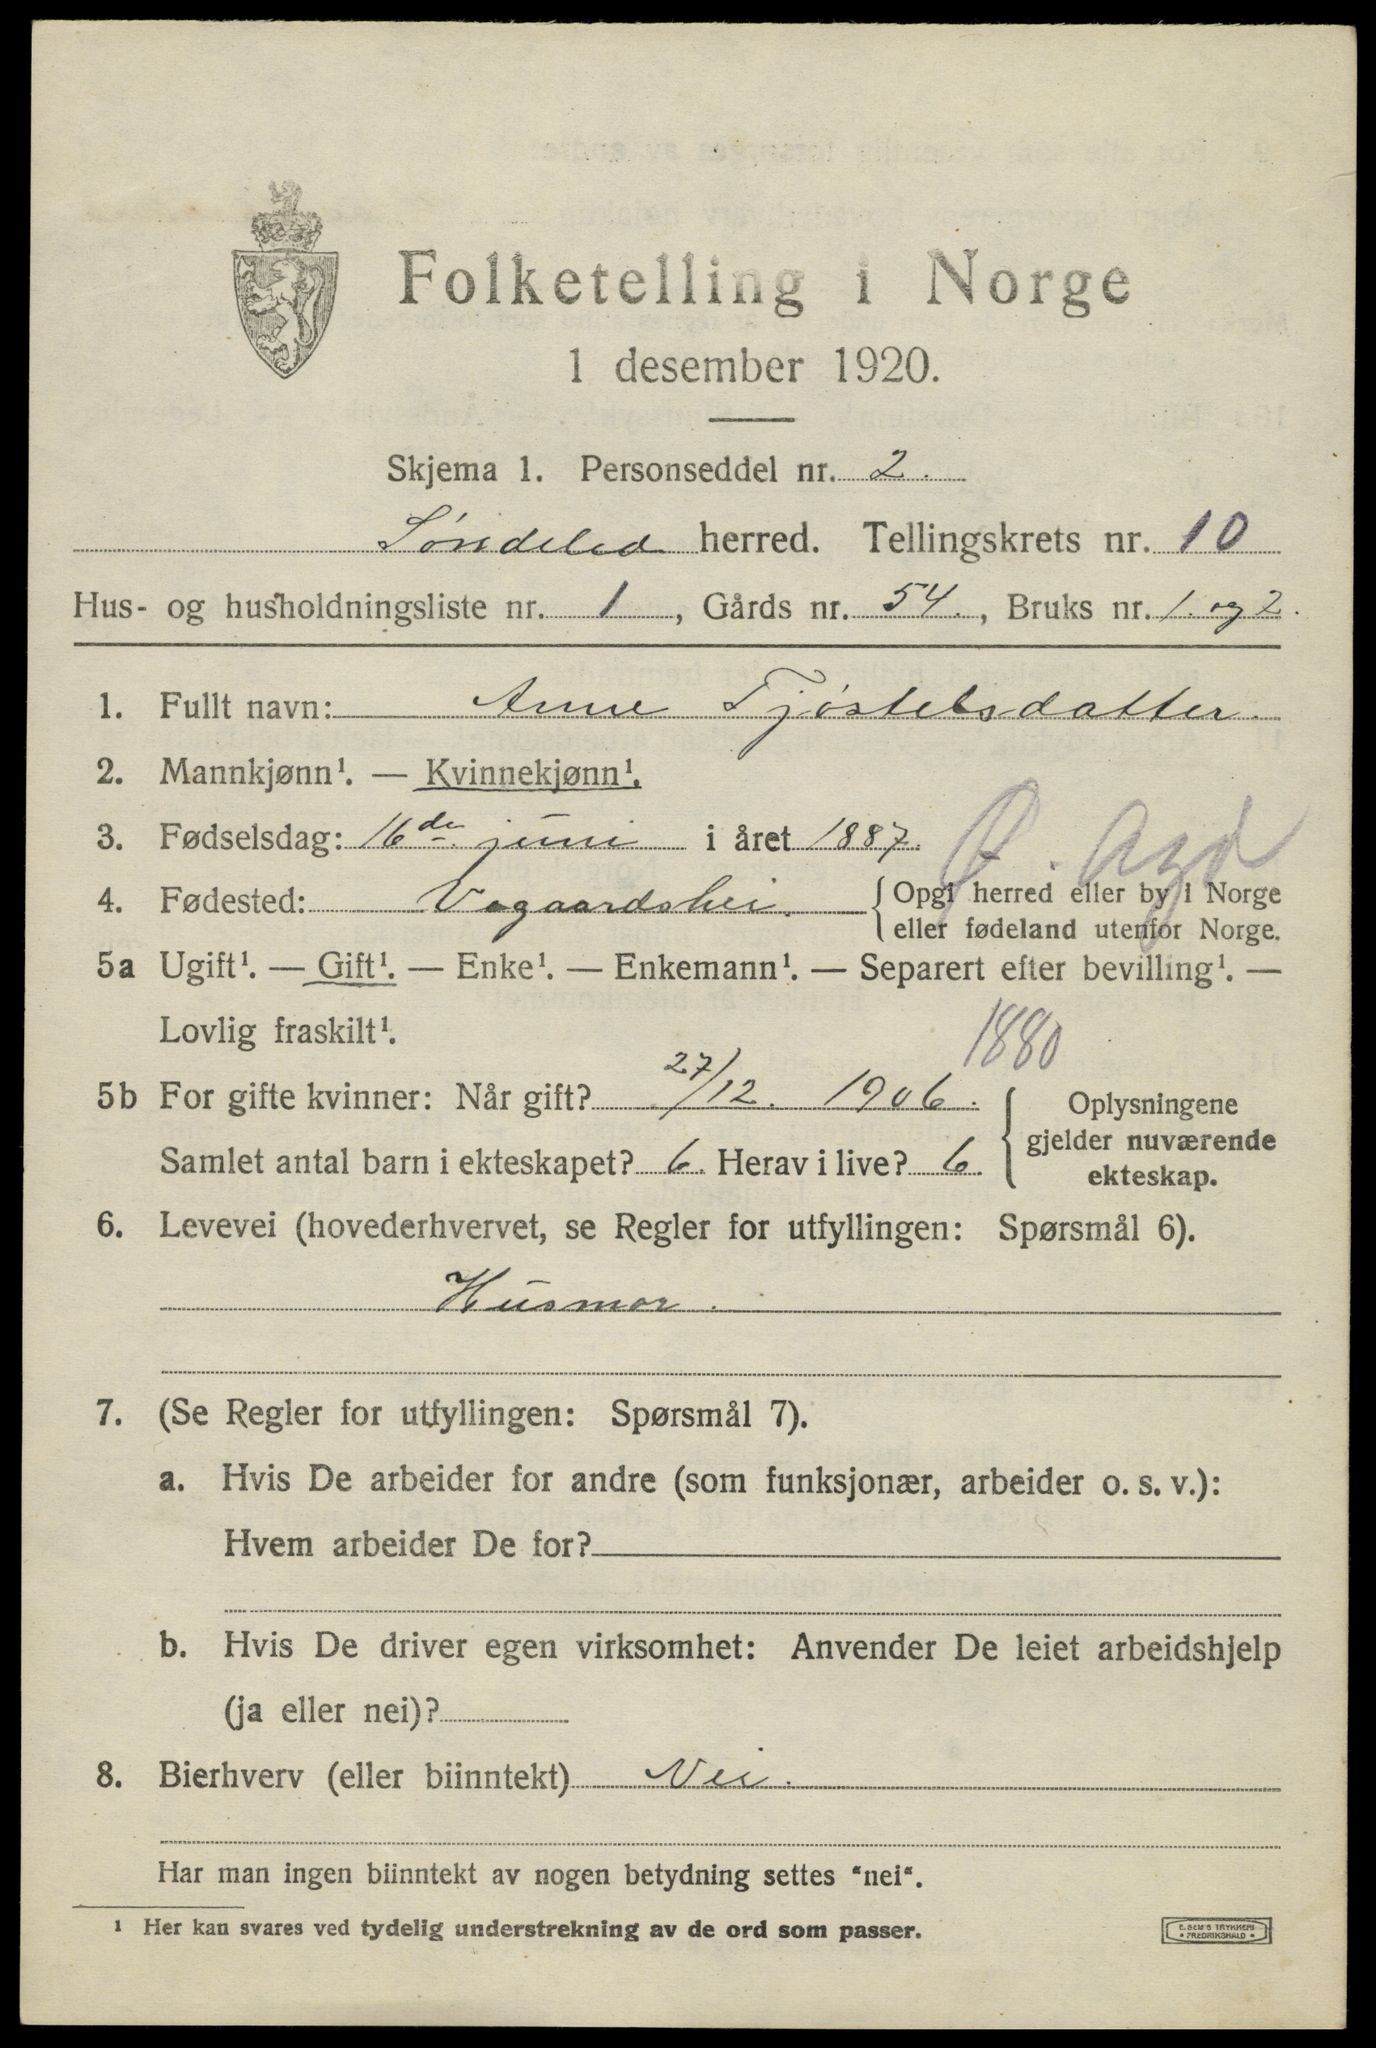 Folketelling i Norge
1 desember 1920.
Skjema 1. Personseddel nr. 2.
Søndeled herred. Tellingskrets nr. 10
Hus- og husholdningsliste nr. 1, Gårds nr. 54., Bruks nr. 1. og 2.
1. Fullt navn: Anne Tjøstelsdatter.
2. Mannkjønn¹. — Kvinnekjønn¹.
3. Fødselsdag: 16de juni i året 1887.
Ø. Agd
4. Fødested: Vegaardshei. Opgi herred eller by i Norge
eller fødeland utenfor Norge.
5a Ugift¹. — Gift¹. — Enke¹. — Enkemann¹. — Separert efter bevilling¹. —
Lovlig fraskilt¹.
1880
5b For gifte kvinner: Når gift? 27/12. 1906. Oplysningene
gjelder nuværende
ekteskap.
Samlet antal barn i ekteskapet? 6. Herav i live? 6.
6. Levevei (hovederhvervet, se Regler for utfyllingen: Spørsmål 6).
Husmor.
7. (Se Regler for utfyllingen: Spørsmål 7).
a. Hvis De arbeider for andre (som funksjonær, arbeider o. s. v.):
Hvem arbeider De for?
b. Hvis De driver egen virksomhet: Anvender De leiet arbeidshjelp
(ja eller nei)?
8. Bierhverv (eller biinntekt) Nei.
Har man ingen biinntekt av nogen betydning settes "nei".
¹ Her kan svares ved tydelig understrekning av de ord som passer.
E. SEM'S TRYKKERI
• FREDRIKSHALD •